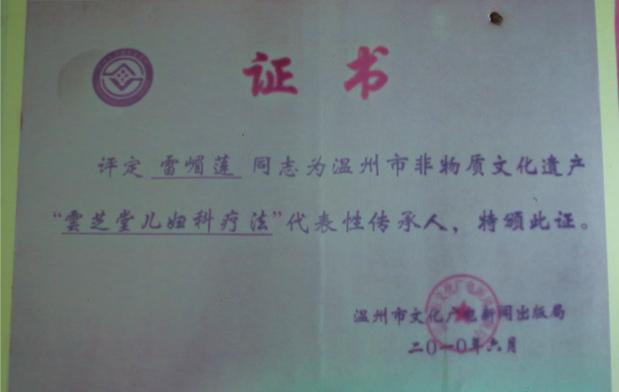 证书
评定 雷嵋莲 同志为温州市非物质文化遗产
“雲芝堂儿妇科疗法”代表性传承人，特颁此证。
温州市文化广电新闻出版局
二〇一〇年六月